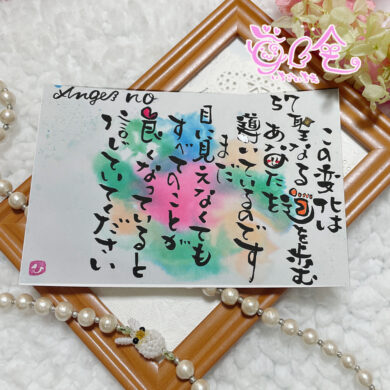 Angel no
57
この変化は
聖なる道を歩む
あなたを
導いているのです
まだ
目に見えなくても
すべてのことが
良くなっていると
していてください